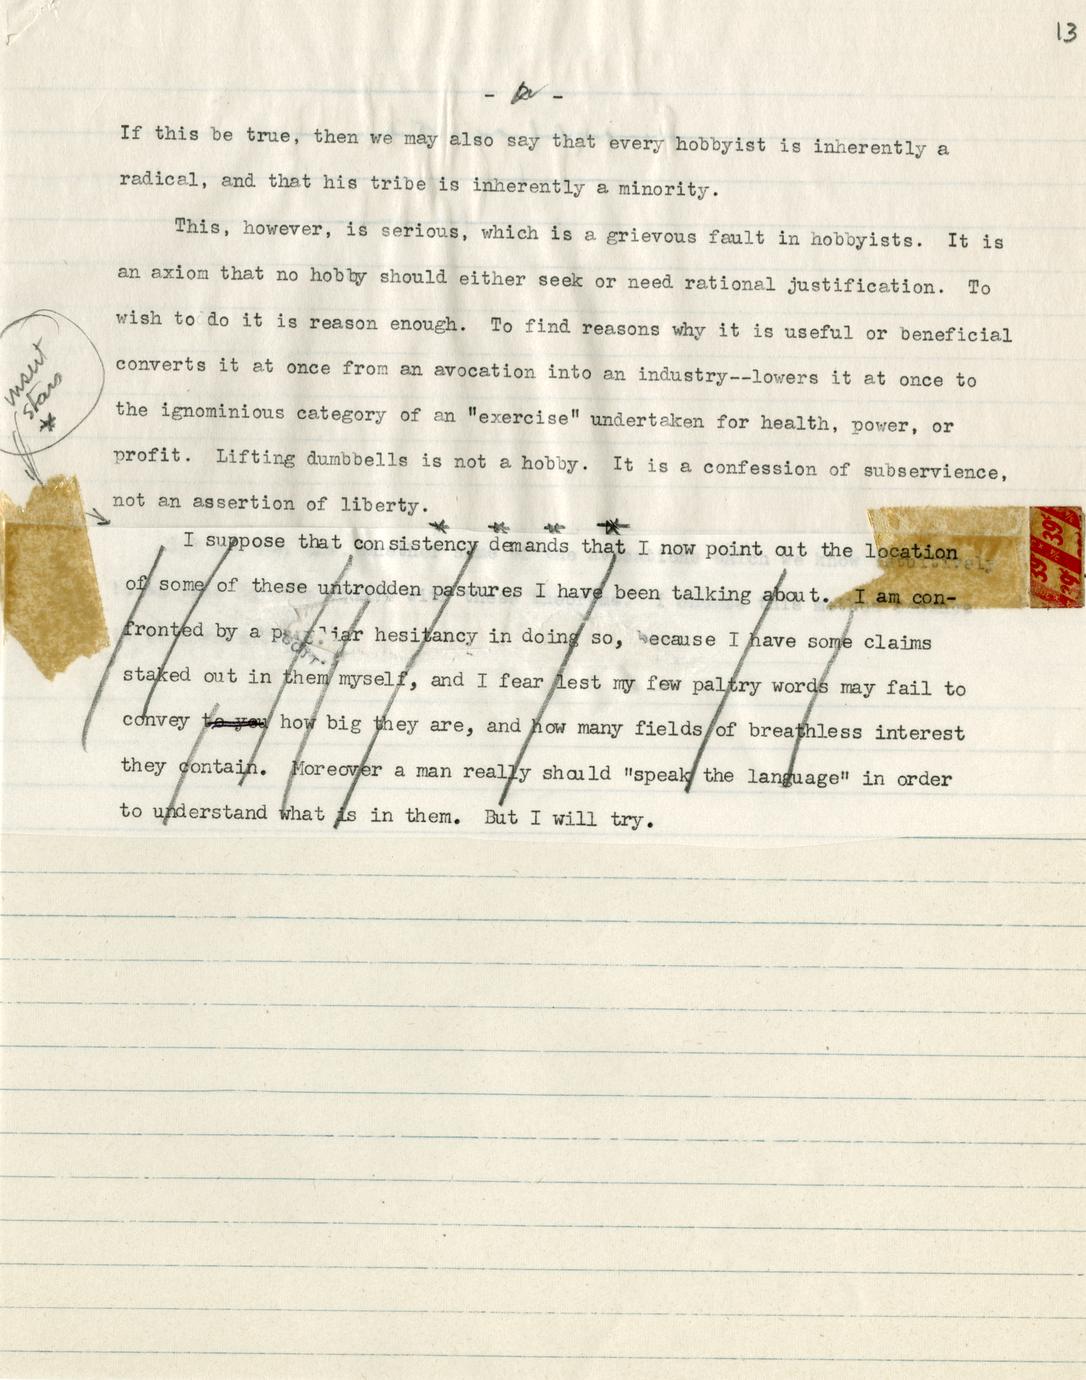 13
- -
If this be true, then we may also say that every hobbyist is inherently a
radical, and that his tribe is inherently a minority.
This, however, is serious, which is a grievous fault in hobbyists. It is
an axiom that no hobby should either seek or need rational justification. To
wish to do it is reason enough. To find reasons why it is useful or beneficial
converts it at once from an avocation into an industry--lowers it at once to
the ignominious category of an "exercise" undertaken for health, power, or
profit. Lifting dumbbells is not a hobby. It is a confession of subservience,
not an assertion of liberty.
insert
stars
*
* * * *
I suppose that consistency demands that I now point out the location
of some of these untrodden pastures I have been talking about. I am con-
fronted by a peculiar hesitancy in doing so, because I have some claims
staked out in them myself, and I fear lest my few paltry words may fail to
convey to you how big they are, and how many fields of breathless interest
they contain. Moreover a man really should "speak the language" in order
to understand what is in them. But I will try.
39¢
39¢